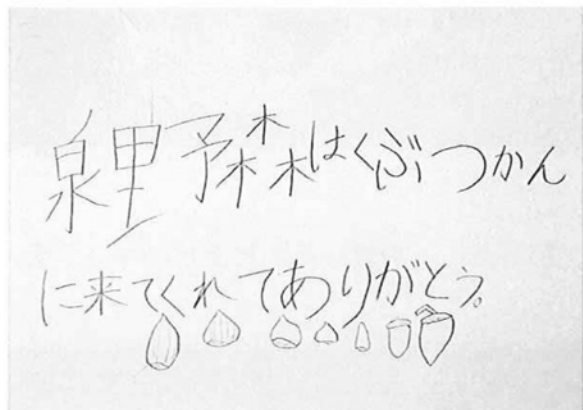 泉野森はくぶつかん
に来てくれてありがとう。